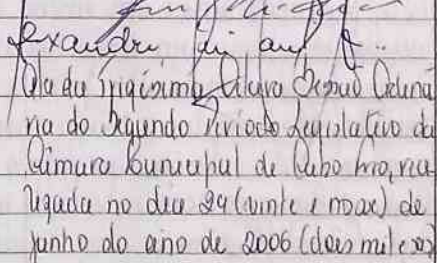 Ata da Trigésima Oitava Sessão Ordiná
ria do Segundo Período Legislativo da
Câmara Municipal de Cabo Frio, rea
ligada no dia 29 (vinte e nove) de
junho do ano de 2006 (dois mil e seis)